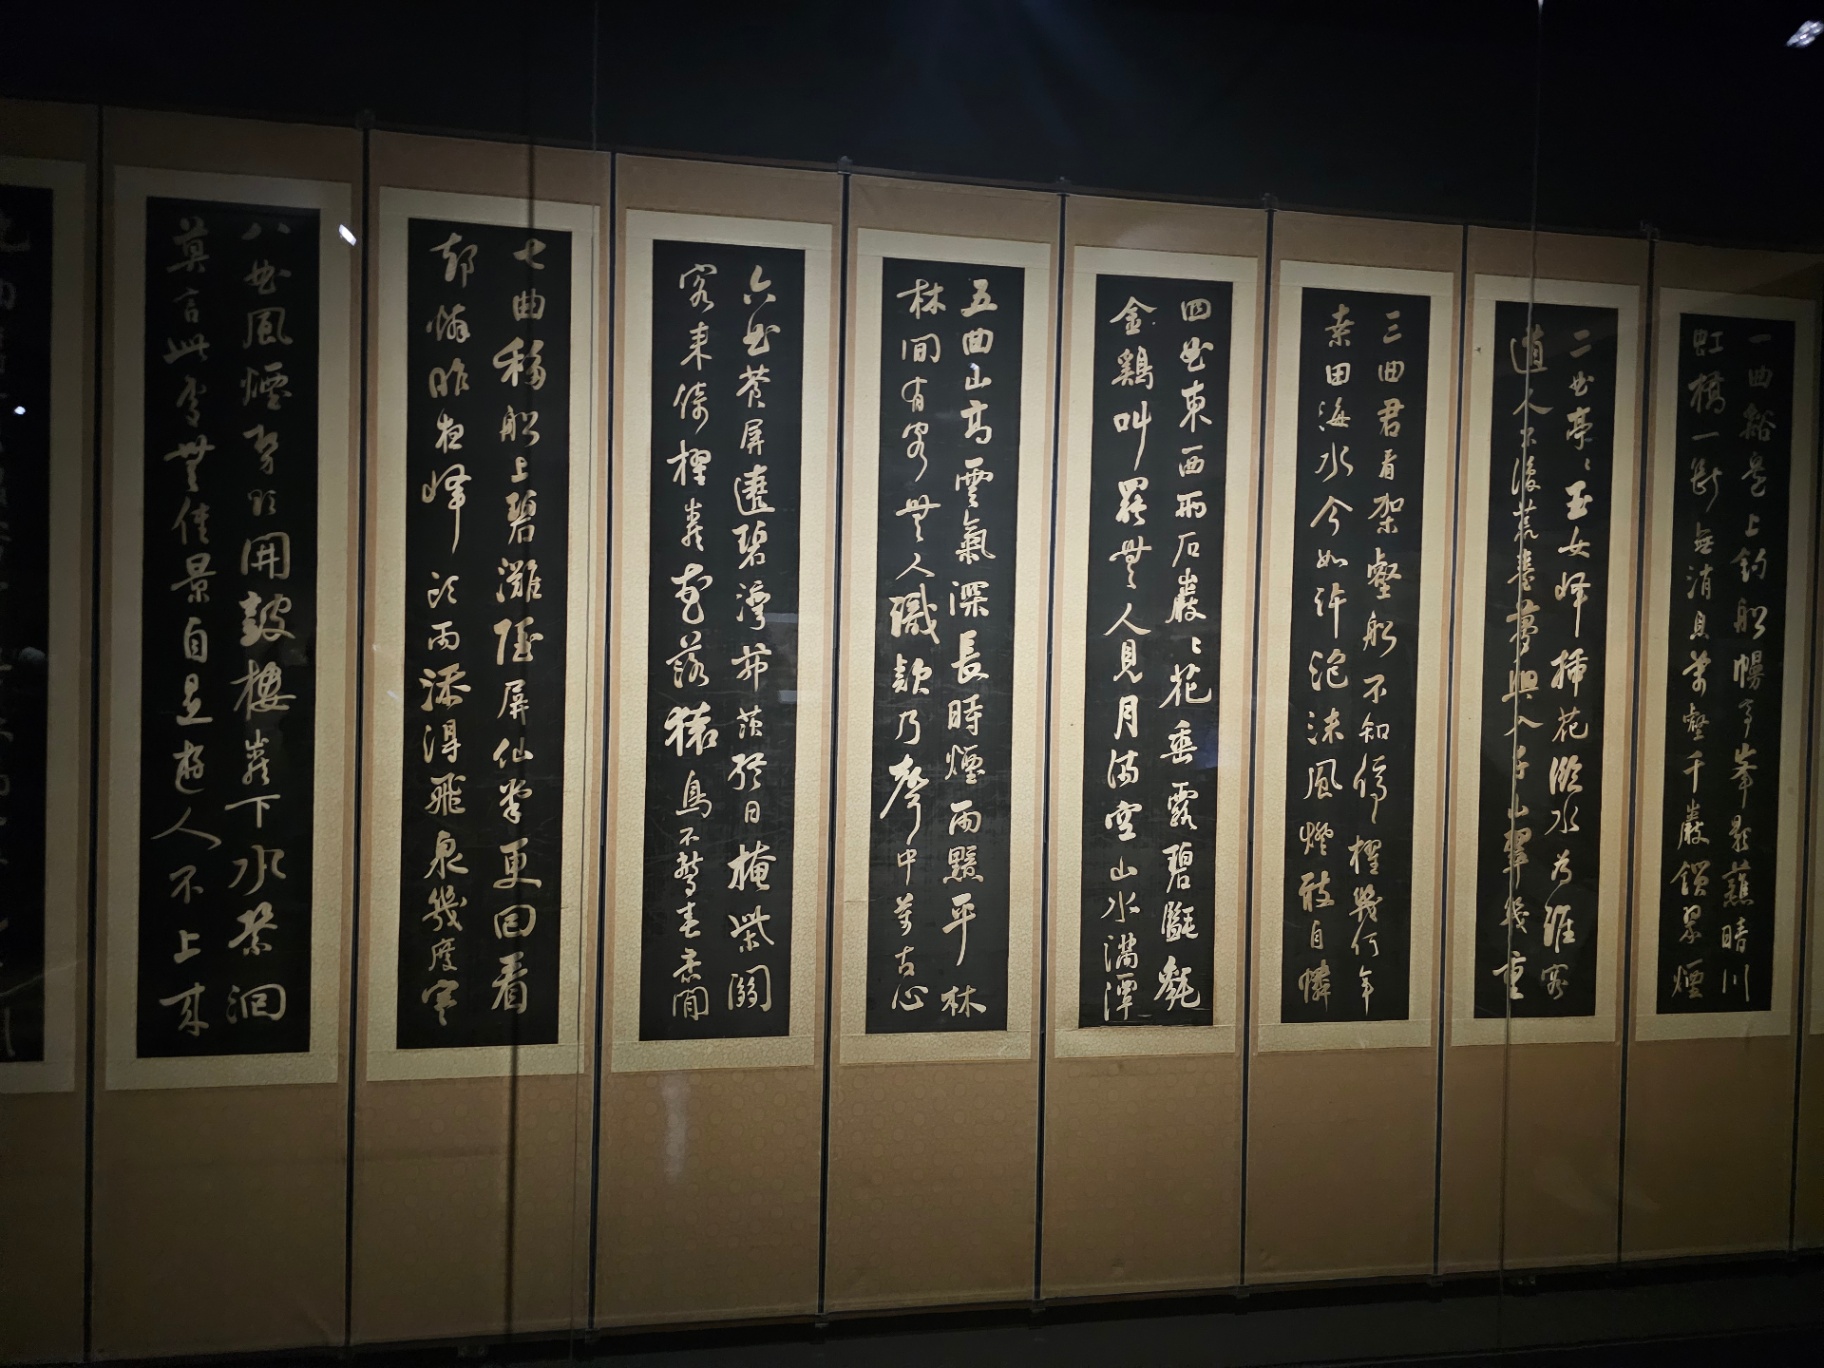 一曲谿邊上釣船幔亭峯影蘸晴川
虹橋一斷無消息萬壑千巖鎖翠煙
二曲亭〻玉女峰揷花臨水為誰容
道人不復荒臺夢興入前山翠幾重
三曲君看架壑船不知停櫂幾何年
桑田海水今如許泡沫風燈敢自憐
四曲東西兩石巖〻花垂露碧㲯毿
金鷄叫罷無人見月滿空山水滿潭
五曲山高雲氣深長時煙雨黯平林
林間有客無人識欸乃聲中萬古心
六曲蒼屏遶碧灣茅茨終日掩柴關
客來倚櫂巖花落猿鳥不驚春意閒
七曲移船上碧灘隱屏仙掌更回看
却憐昨夜峰頭雨添得飛泉幾度寒
八曲風煙勢欲開鼓樓巖下水縈洄
莫言此處無佳景自是遊人不上來